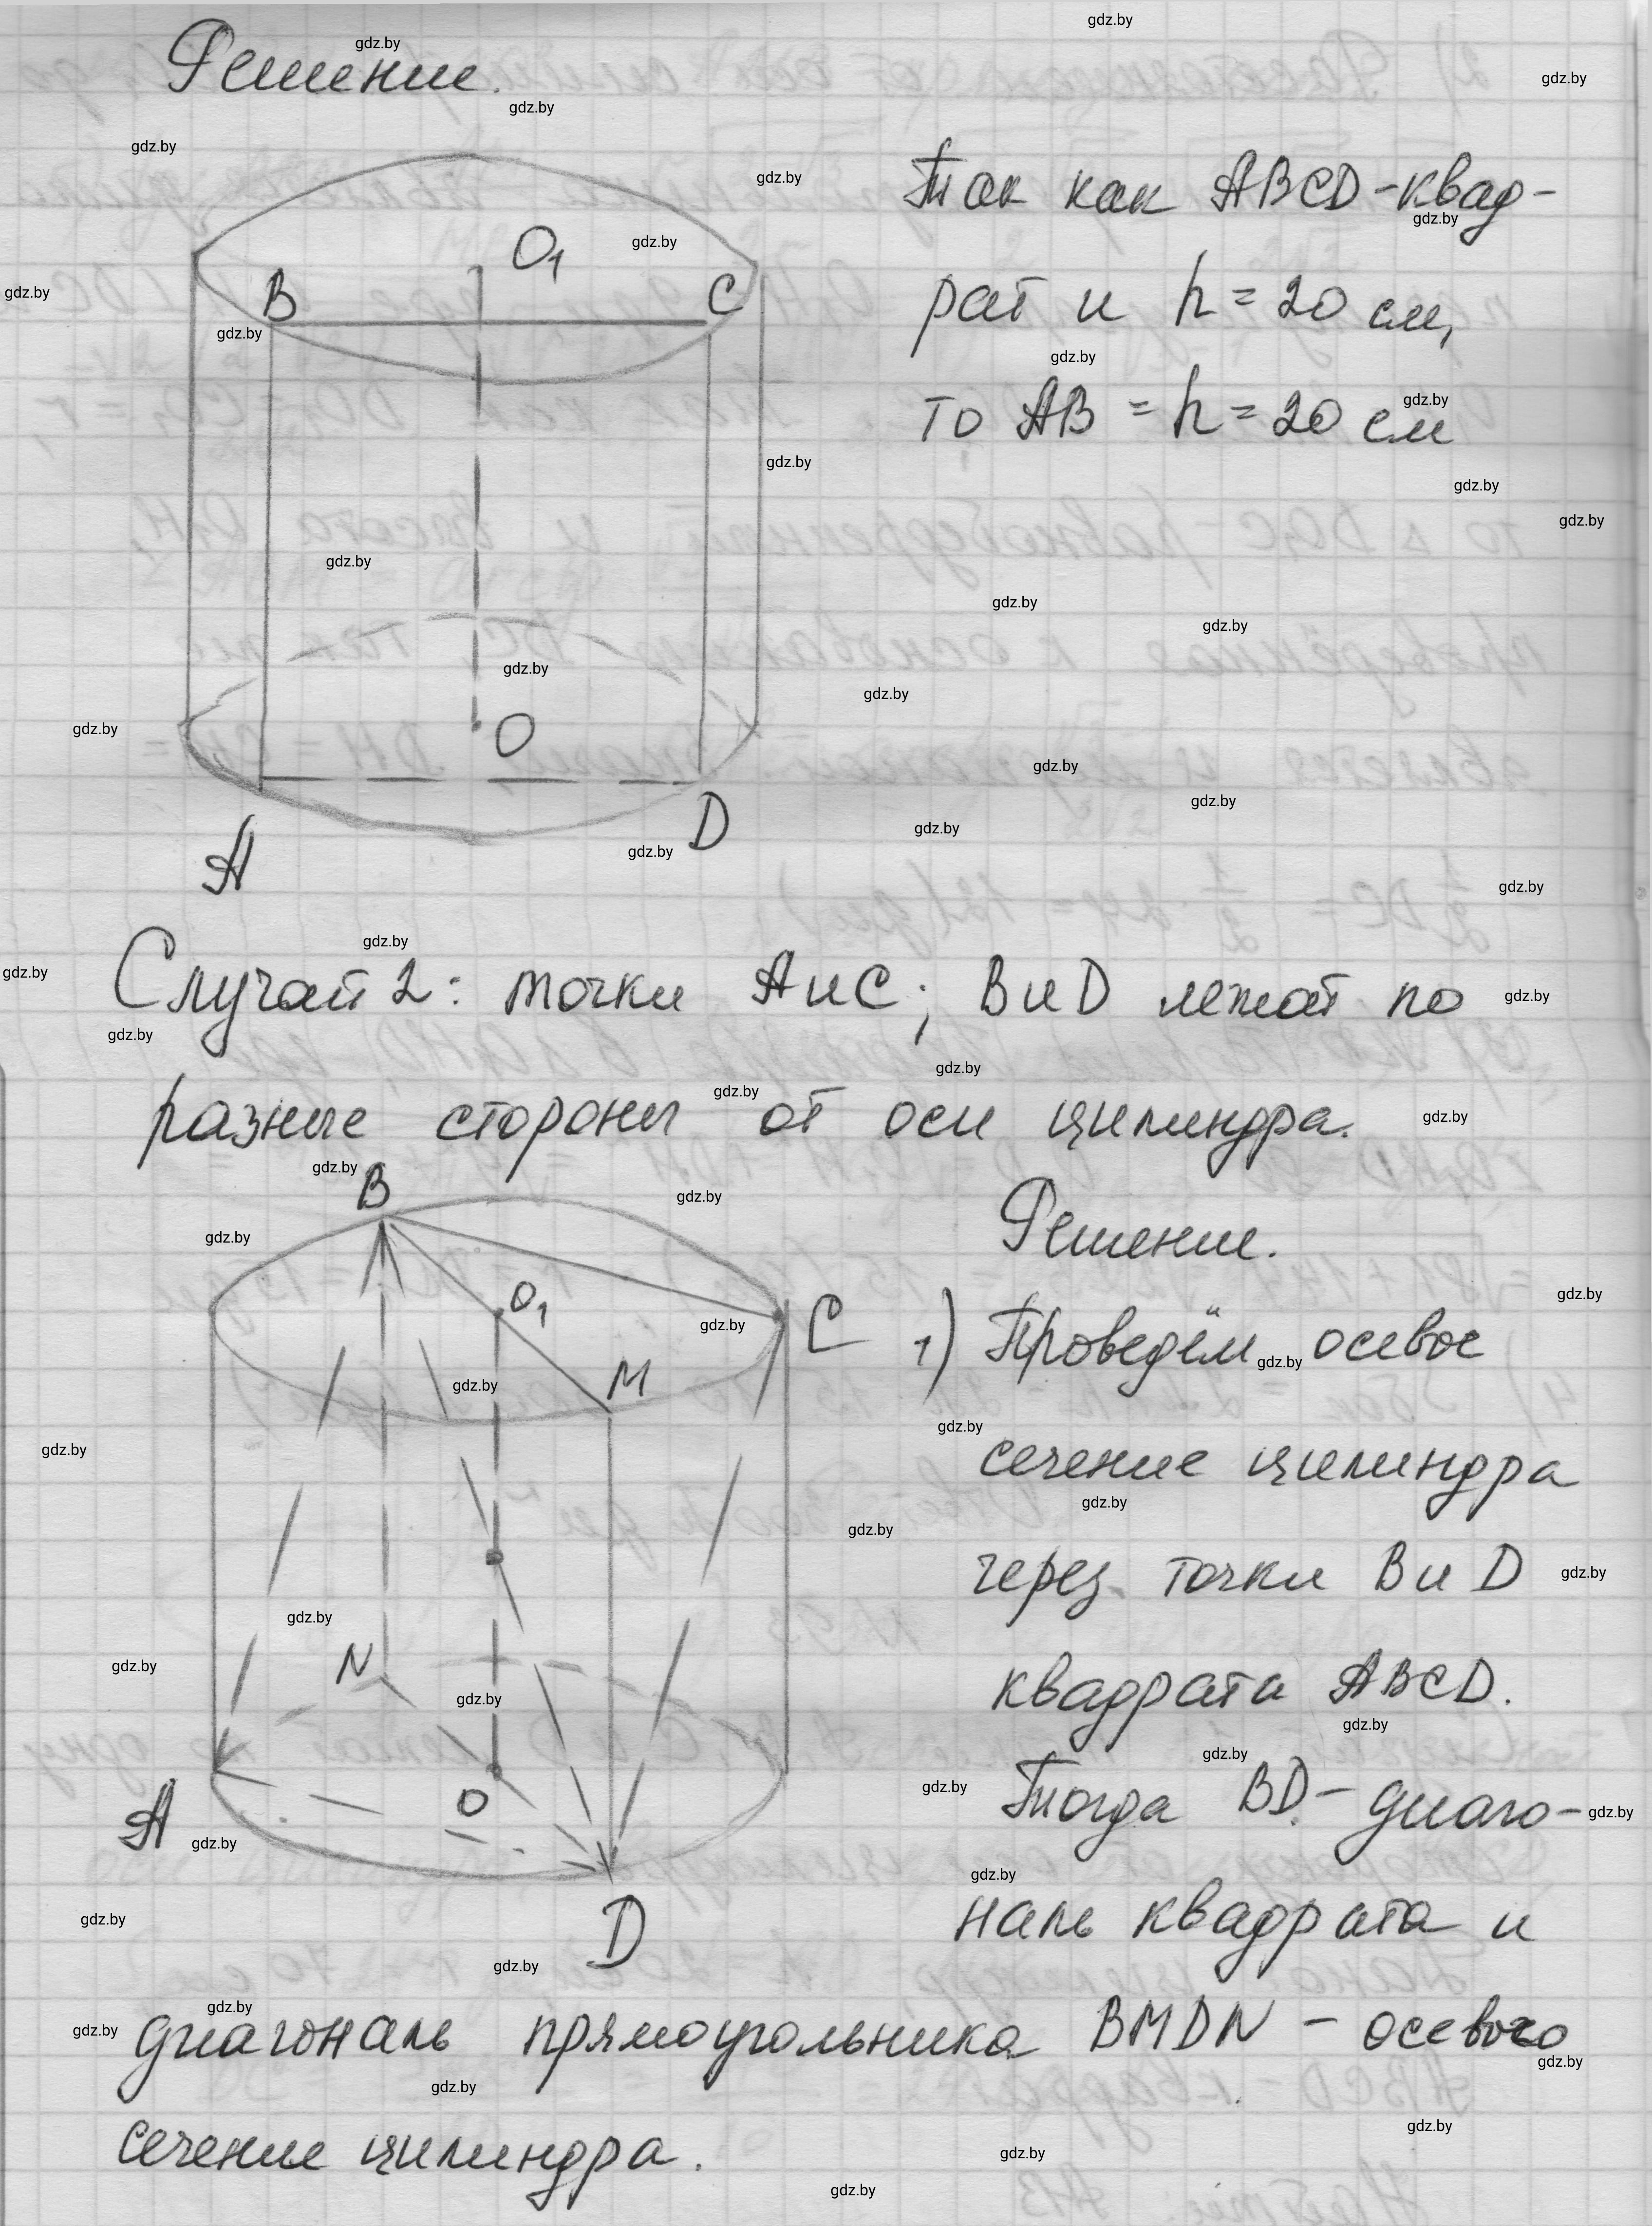 Решение.
Так как ABCD-квад-
рат и h = 20 см,
то AB = h = 20 см
O₁
B
C
O
A
D
Случай 2: точки A и C; B и D лежат по
разные стороны от оси цилиндра.
B
O₁
M
C
N
O
A
D
Решение.
1) Проведём осевое
сечение цилиндра
через точки B и D
квадрата ABCD.
Тогда BD - диаго-
наль квадрата и
диагональ прямоугольника BMDN - осевого
сечение цилиндра.
gdz.by